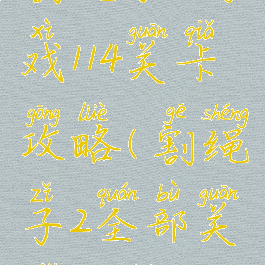 xì guān qiǎ
戏114关卡
gōng lüè gē shéng
攻略(割绳
zǐ quán bù guān
子2全部关